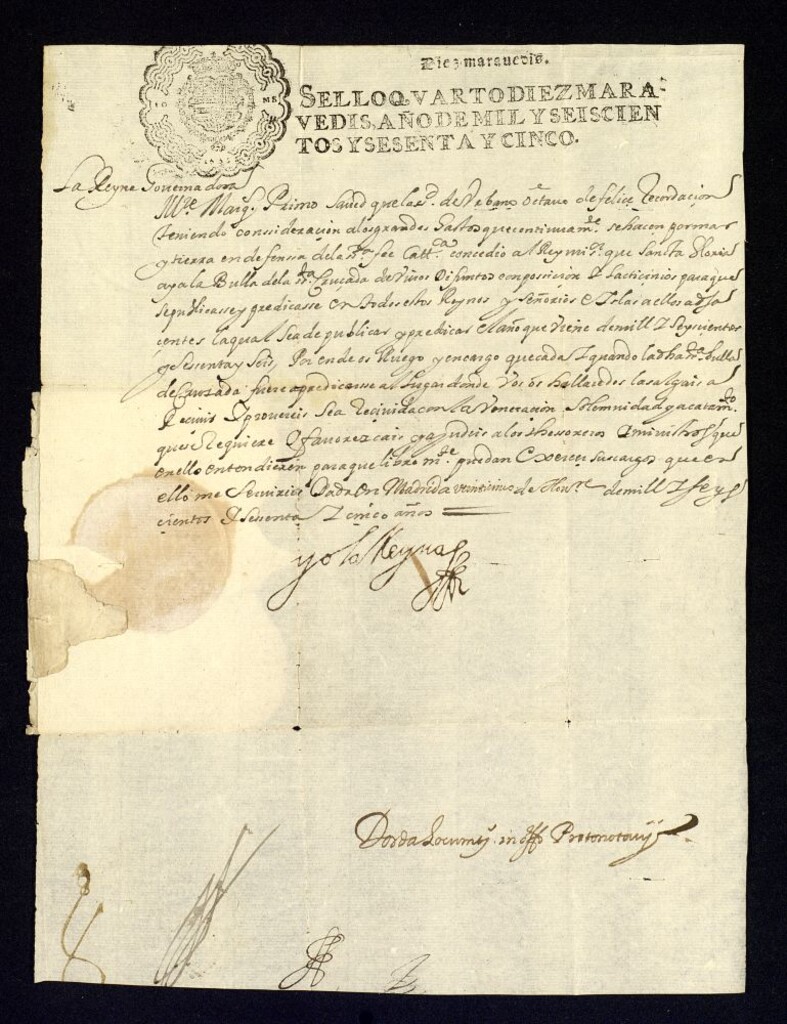 Diez marauedis.
SELLO QVARTO DIEZ MARA-
VEDIS, AÑO DE MIL Y SEISCIEN
TOS Y SESENTA Y CINCO.
La Reyna Gouernadora
Mre. Marqs. Primo Saued que la sd. de Vrbano Octauo de felice Recordacion
teniendo consideracion a los grandes Gastos que continuamte. se hacen por mar
y tierra en defensa de la sta. fee Cattca. concedio al Rey mi sr. que Sancta Gloria
aya la Bulla de la sta. Cruzada de Viuos Difuntos composicion y lacticinios para que
se publicasse y predicasse en todos estos Reynos y señorios e Islas a ellos adja
centes la qual sea de publicar y predicar el año que Viene de mill y Seyscientos
y Sessenta y Seis, Por ende os Ruego y encargo que cada y quando la dha sta. bulla
de Cruzada fuere a predicarse al Lugar donde Vos os hallaredes la salgais a
Receuir y proueeis sea Reciuida con la Veneracion Solemnidad y acatamto.
que se Requiere y fauorezcais y ayudeis a los thessoreros y ministros que
en ello entendieren para que libremte. puedan exercer sus cargos que en
ello me Seruireis Dada en Madrid a veinticinco de Noure. de mill y seys
cientos y Sessenta y cinco años
yo la Reyna
Dorda Locumts. in offo Protonotarij